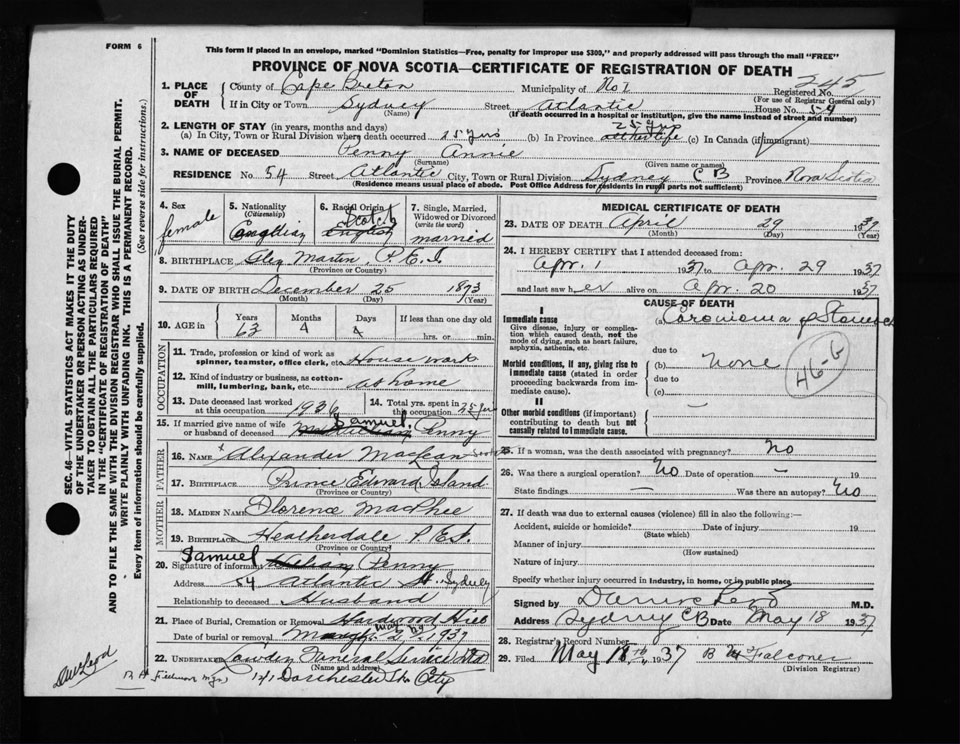 FORM 6
This form if placed in an envelope, marked "Dominion Statistics—Free, penalty for improper use $300," and properly addressed will pass through the mail "FREE"
PROVINCE OF NOVA SCOTIA—CERTIFICATE OF REGISTRATION OF DEATH
1. PLACE OF DEATH
County of Cape Breton Municipality of No 1 Registered No. 245
(For use of Registrar General only)
If in City or Town Sydney Street Atlantic House No. 54
(Name) (If death occurred in a hospital or institution, give the name instead of street and number)
2. LENGTH OF STAY (in years, months and days)
(a) In City, Town or Rural Division where death occurred 25 yrs (b) In Province 25 yrs (c) In Canada (if immigrant)
3. NAME OF DECEASED Penny Annie
(Surname) (Given name or names)
RESIDENCE No. 54 Street Atlantic City, Town or Rural Division Sydney C B Province Nova Scotia
(Residence means usual place of abode. Post Office Address for residents in rural parts not sufficient)
4. Sex female
5. Nationality (Citizenship) Canadian
6. Racial Origin Scotch English
7. Single, Married, Widowed or Divorced (write the word) married
8. BIRTHPLACE Glen Martin, P.E.I.
(Province or Country)
9. DATE OF BIRTH December 25 1873
(Month) (Day) (Year)
10. AGE in Years Months Days If less than one day old
63 4 4 hrs. or min.
OCCUPATION
11. Trade, profession or kind of work as spinner, teamster, office clerk, etc. House work
12. Kind of industry or business, as cotton-mill, lumbering, bank, etc. at home
13. Date deceased last worked at this occupation 1936
14. Total yrs. spent in this occupation 25 yrs
15. If married give name of wife or husband of deceased Samuel Penny
FATHER
16. NAME Alexander MacLean
17. BIRTHPLACE Prince Edward Island
(Province or Country)
MOTHER
18. MAIDEN NAME Florence MacPhee
19. BIRTHPLACE Heatherdale P.E.I.
(Province or Country)
20. Signature of informant Samuel Penny
Address 54 Atlantic St. Sydney
Relationship to deceased Husband
21. Place of Burial, Cremation or Removal Hardwood Hill
Date of burial or removal May 1937
22. UNDERTAKER Funeral Service Ltd
(Name and address)
Dorchester St. City
MEDICAL CERTIFICATE OF DEATH
23. DATE OF DEATH April 29 1937
(Month) (Day) (Year)
24. I HEREBY CERTIFY that I attended deceased from:
Apr. 1 1937 to Apr. 29 1937
and last saw her alive on Apr. 20 1937
CAUSE OF DEATH
I
Immediate cause (a) Carcinoma of Stomach
Give disease, injury or complication which caused death, not the mode of dying, such as heart failure, asphyxia, asthenia, etc.
due to
Morbid conditions, if any, giving rise to immediate cause (stated in order proceeding backwards from immediate cause).
(b) None
due to
(c)
46 b
II
Other morbid conditions (if important) contributing to death but not causally related to immediate cause.
25. If a woman, was the death associated with pregnancy? No
26. Was there a surgical operation? No Date of operation — 19
State findings — Was there an autopsy? No
27. If death was due to external causes (violence) fill in also the following:—
Accident, suicide or homicide? Date of injury 19
(State which)
Manner of injury
(How sustained)
Nature of injury
Specify whether injury occurred in Industry, in home, or in public place
Signed by M.D.
Address Sydney CB Date May 18 1937
28. Registrar's Record Number
29. Filed May 18th 1937 Falconer
(Division Registrar)
SEC. 46—VITAL STATISTICS ACT MAKES IT THE DUTY
OF THE UNDERTAKER OR PERSON ACTING AS UNDER-
TAKER TO OBTAIN ALL THE PARTICULARS REQUIRED
IN THE "CERTIFICATE OF REGISTRATION OF DEATH"
AND TO FILE THE SAME WITH THE DIVISION REGISTRAR WHO SHALL ISSUE THE BURIAL PERMIT.
WRITE PLAINLY WITH UNFADING INK. THIS IS A PERMANENT RECORD.
Every item of information should be carefully supplied.
(See reverse side for instructions.)